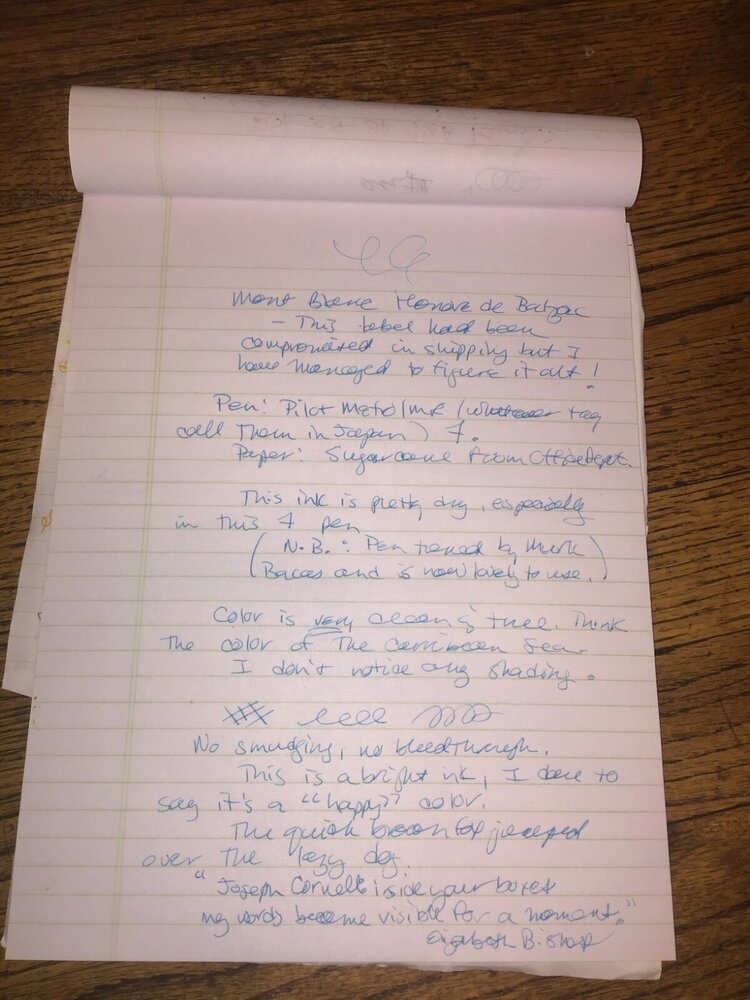 Mont Blanc Honore de Balzac
- This label had been
compromised in shipping but I
have managed to figure it out!
Pen: Pilot Metro/MR (whatever they
call Them in Japan) f.
Paper: Sugarcane from Office Depot.
This ink is pretty dry, especially
in this f pen
(N.B.: Pen tuned by Mark
Bacas and is now lovely to use.)
Color is very clean & true. Think
The color of The Carribean Sea.
I don't notice any shading.
No smudging, no bleedthrough.
This is a bright ink, I dare to
say it's a "happy" color.
The quick brown fox jumped
over The lazy dog.
"Joseph Cornell: inside your boxes
my words become visible for a moment."
Elizabeth Bishop